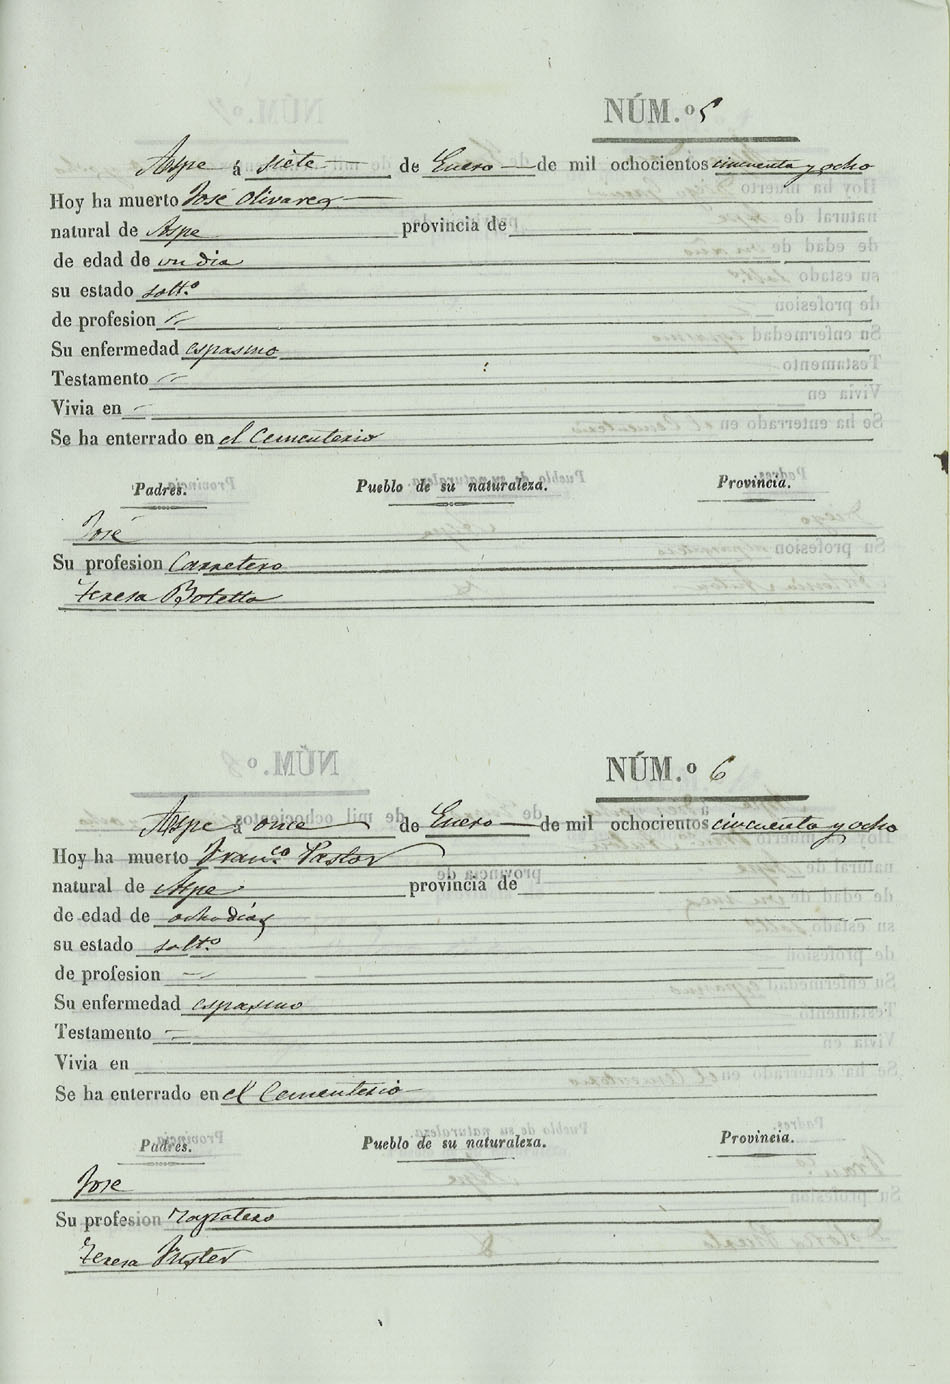 NÚM.º 5
Aspe á siete de Enero de mil ochocientos cincuenta y ocho
Hoy ha muerto José Olivares
natural de Aspe provincia de
de edad de un dia
su estado soltº
de profesion
Su enfermedad espasmo
Testamento
Vivia en
Se ha enterrado en el Cementerio
Padres. Pueblo de su naturaleza. Provincia.
José
Su profesion Carretero
Teresa Botella
NÚM.º 6
Aspe á once de Enero de mil ochocientos cincuenta y ocho
Hoy ha muerto Franco Pastor
natural de Aspe provincia de
de edad de ocho dias
su estado solto
de profesion
Su enfermedad espasmo
Testamento
Vivia en
Se ha enterrado en el Cementerio
Padres. Pueblo de su naturaleza. Provincia.
Jose
Su profesion Zapatero
Teresa